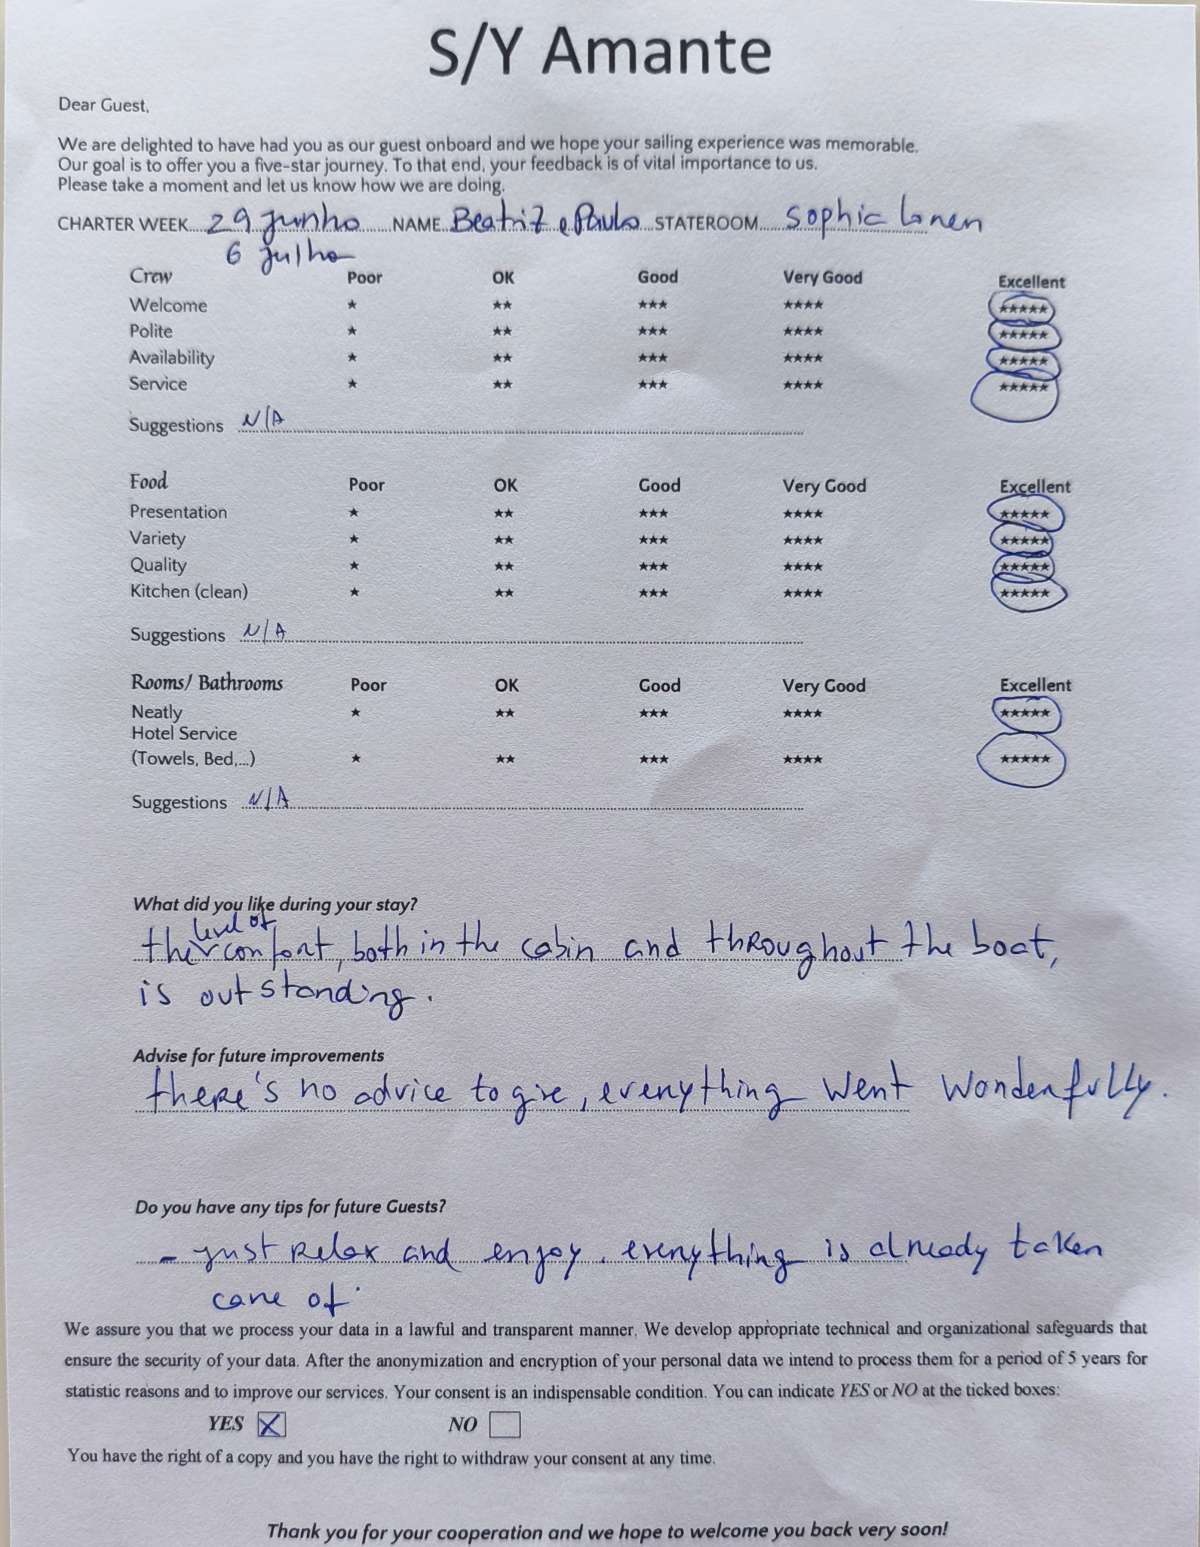 S/Y Amante
Dear Guest,
We are delighted to have had you as our guest onboard and we hope your sailing experience was memorable.
Our goal is to offer you a five-star journey. To that end, your feedback is of vital importance to us.
Please take a moment and let us know how we are doing.
CHARTER WEEK 29 junho NAME Beatriz e Paulo STATEROOM Sophia Loren
6 julho
Crew Poor OK Good Very Good Excellent
Welcome ★ ★★ ★★★ ★★★★ ★★★★★
Polite ★ ★★ ★★★ ★★★★ ★★★★★
Availability ★ ★★ ★★★ ★★★★ ★★★★★
Service ★ ★★ ★★★ ★★★★ ★★★★★
Suggestions N/A
Food Poor OK Good Very Good Excellent
Presentation ★ ★★ ★★★ ★★★★ ★★★★★
Variety ★ ★★ ★★★ ★★★★ ★★★★★
Quality ★ ★★ ★★★ ★★★★ ★★★★★
Kitchen (clean) ★ ★★ ★★★ ★★★★ ★★★★★
Suggestions N/A
Rooms/ Bathrooms Poor OK Good Very Good Excellent
Neatly ★ ★★ ★★★ ★★★★ ★★★★★
Hotel Service
(Towels, Bed,...) ★ ★★ ★★★ ★★★★ ★★★★★
Suggestions N/A
What did you like during your stay?
the level of confort, both in the cabin and throughout the boat,
is outstanding.
Advise for future improvements
there's no advice to give, everything went wonderfully.
Do you have any tips for future Guests?
- just relax and enjoy. everything is already taken
care of.
We assure you that we process your data in a lawful and transparent manner. We develop appropriate technical and organizational safeguards that
ensure the security of your data. After the anonymization and encryption of your personal data we intend to process them for a period of 5 years for
statistic reasons and to improve our services. Your consent is an indispensable condition. You can indicate YES or NO at the ticked boxes:
YES X NO
You have the right of a copy and you have the right to withdraw your consent at any time.
Thank you for your cooperation and we hope to welcome you back very soon!